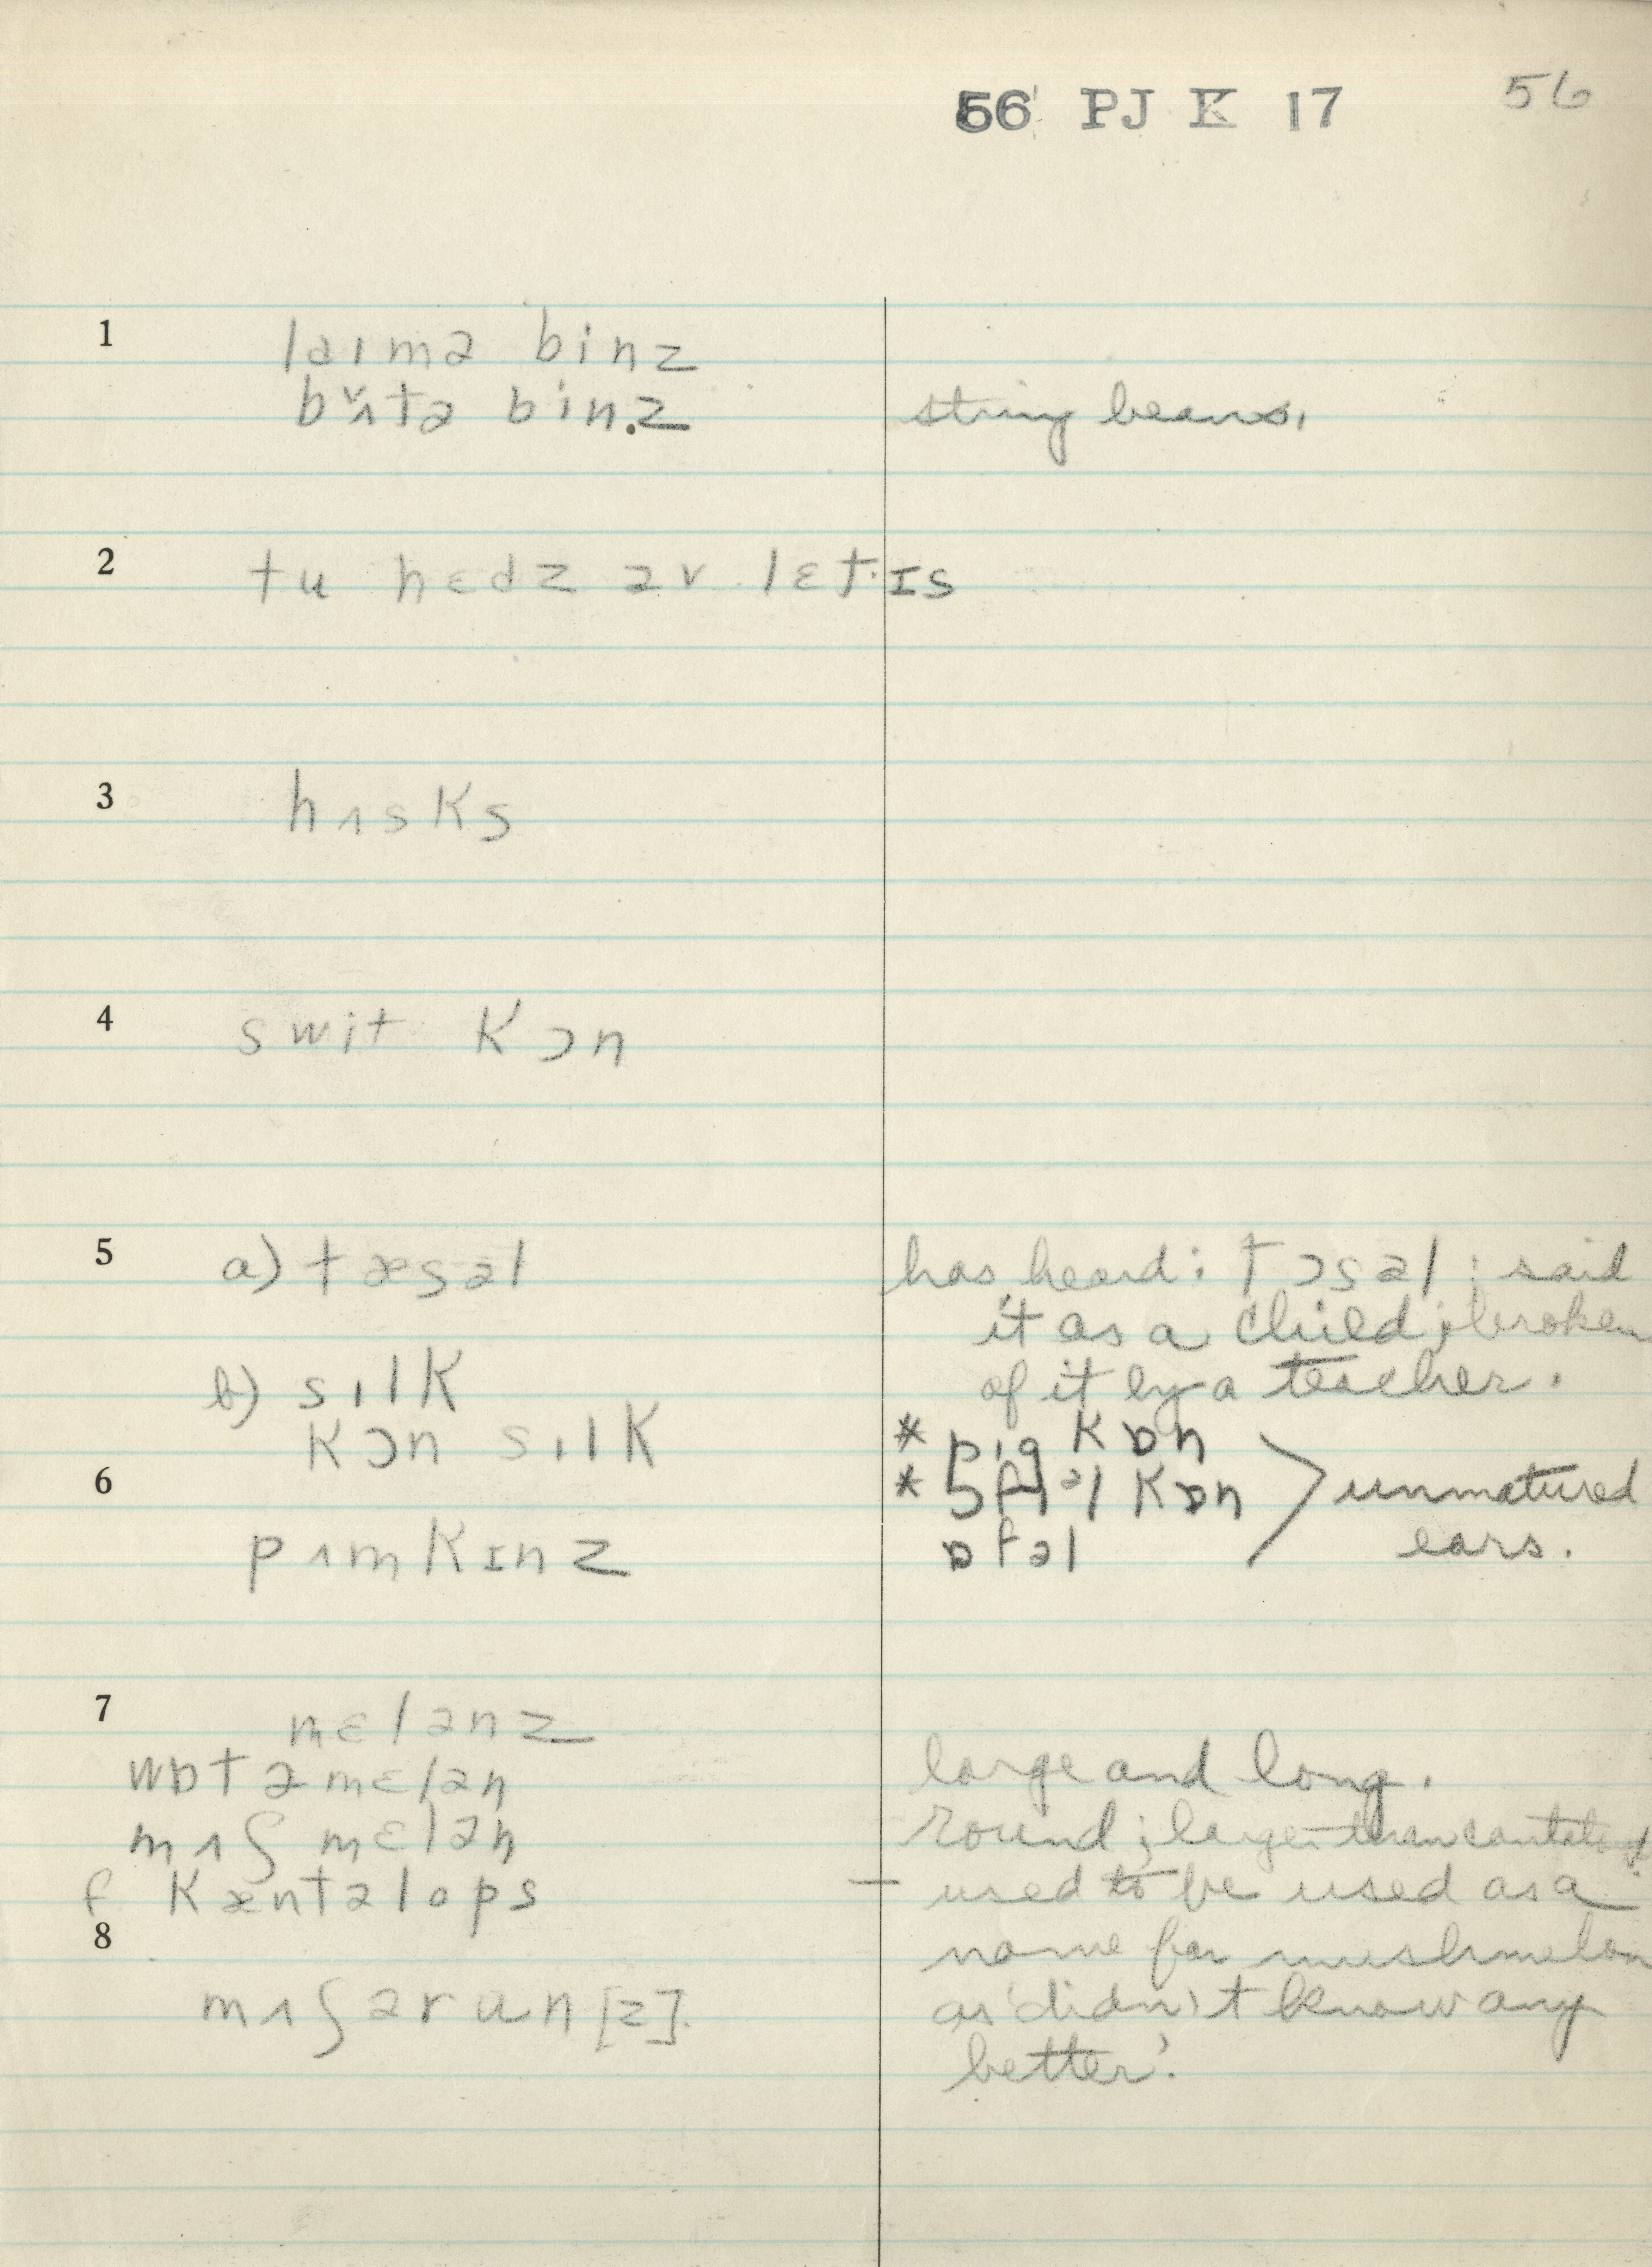 56 PJ K 17 56
1 laɪmə binz
bʌ̌tə binz string beans.
2 tu hɛdz əv lɛtɪs
3 hʌsks
4 swit kɔn
5 a) tæsəl has heard: tɔsəl : said
it as a child; broken
b) sɪlk of it by a teacher.
kɔn sɪlk * pɪg kɒn
6 * kɒn unmatured
pʌmkɪnz ears.
7 mɛlənz
wɒtəmɛlən large and long.
mʌʃmɛlən round; larger than
f kæntəlops — used to be used as a
8 name for mushmelon
mʌʃərun[z]. as 'didn't know any
better'.